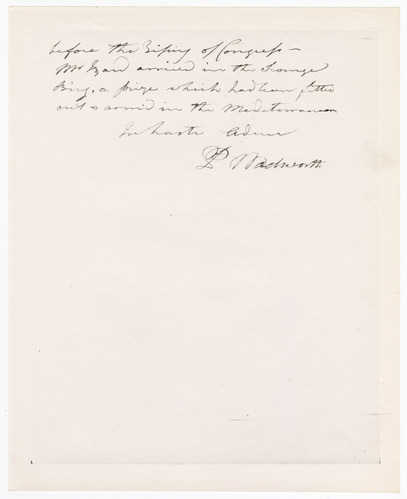 before the Rising of Congress –
Mr Izard arrived in the
Brig, a prize which had been fitted
out & armed in the Mediterranean
In haste Adieu
P Wadsworth